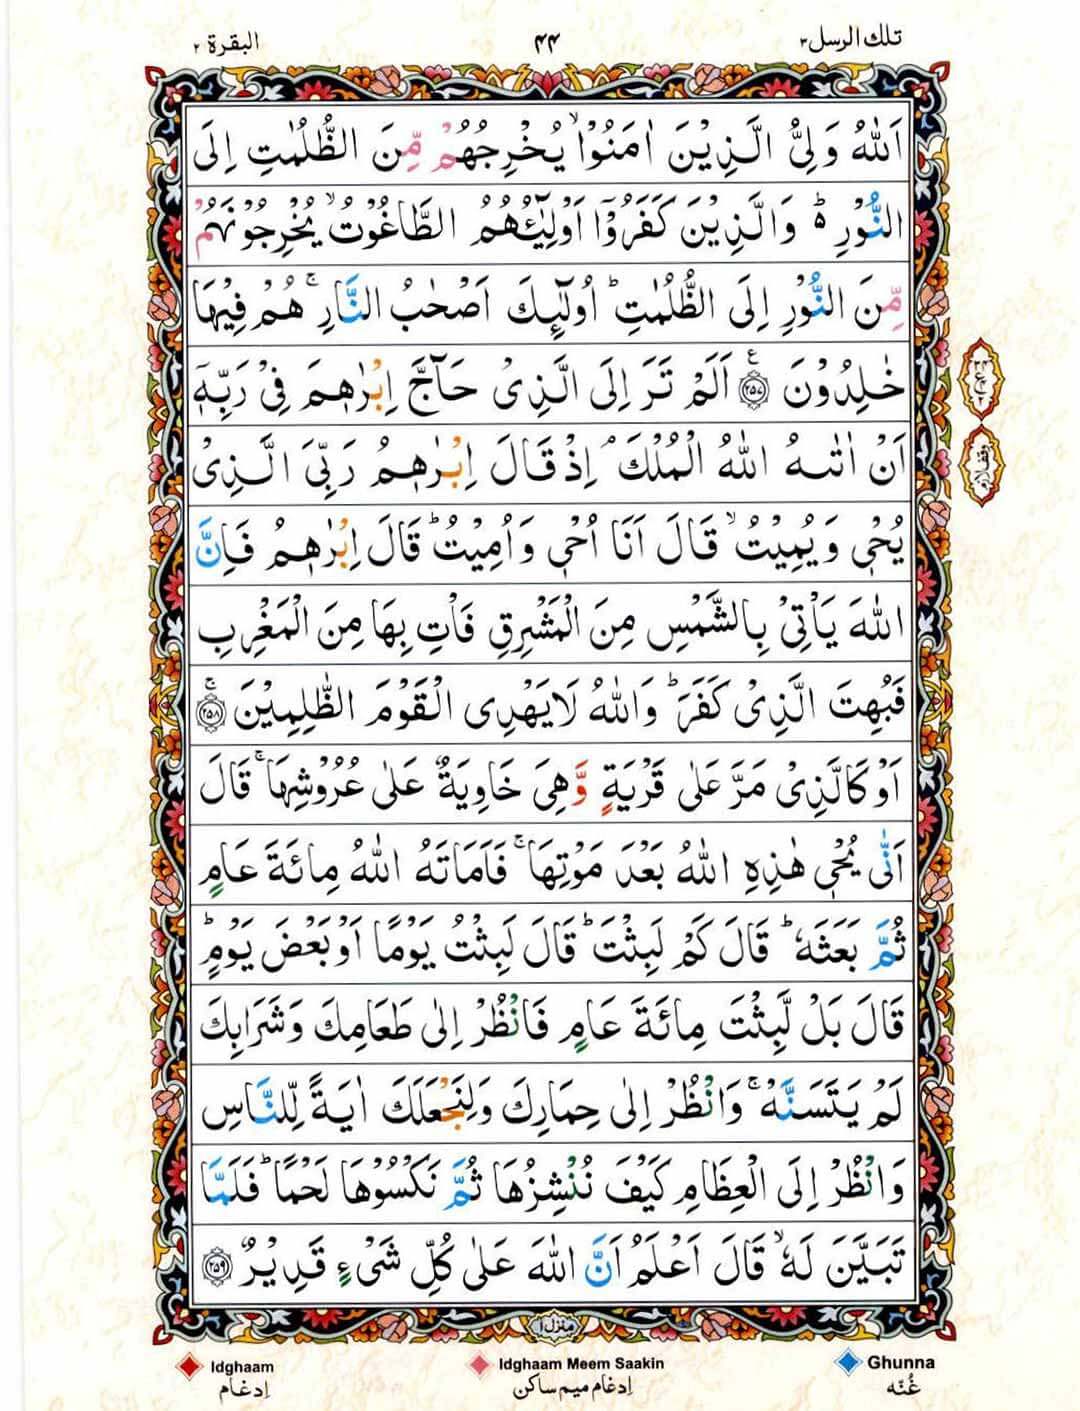 تلك الرسل ٣
٤٤
البقرة ٢
اَللّٰهُ وَلِیُّ الَّذِیْنَ اٰمَنُوْا ۙ یُخْرِجُهُمْ مِّنَ الظُّلُمٰتِ اِلَی
النُّوْرِ ؕ۬ وَالَّذِیْنَ كَفَرُوْۤا اَوْلِیٰٓـُٔهُمُ الطَّاغُوْتُ ۙ یُخْرِجُوْنَهُمْ
مِّنَ النُّوْرِ اِلَی الظُّلُمٰتِ ؕ اُولٰٓئِكَ اَصْحٰبُ النَّارِ ۚ هُمْ فِیْهَا
خٰلِدُوْنَ ﴿۲۵۷﴾ ع اَلَمْ تَرَ اِلَی الَّذِیْ حَآجَّ اِبْرٰهٖمَ فِیْ رَبِّهٖۤ
اَنْ اٰتٰىهُ اللّٰهُ الْمُلْكَ ۘ اِذْ قَالَ اِبْرٰهٖمُ رَبِّیَ الَّذِیْ
یُحْیٖ وَیُمِیْتُ ۙ قَالَ اَنَا اُحْیٖ وَاُمِیْتُ ؕ قَالَ اِبْرٰهٖمُ فَاِنَّ
اللّٰهَ یَاْتِیْ بِالشَّمْسِ مِنَ الْمَشْرِقِ فَاْتِ بِهَا مِنَ الْمَغْرِبِ
فَبُهِتَ الَّذِیْ كَفَرَ ؕ وَاللّٰهُ لَا یَهْدِی الْقَوْمَ الظّٰلِمِیْنَ ﴿۲۵۸﴾ ۚ
اَوْ كَالَّذِیْ مَرَّ عَلٰی قَرْیَةٍ وَّهِیَ خَاوِیَةٌ عَلٰی عُرُوْشِهَا ۚ قَالَ
اَنّٰی یُحْیٖ هٰذِهِ اللّٰهُ بَعْدَ مَوْتِهَا ۚ فَاَمَاتَهُ اللّٰهُ مِائَةَ عَامٍ
ثُمَّ بَعَثَهٗ ؕ قَالَ كَمْ لَبِثْتَ ؕ قَالَ لَبِثْتُ یَوْمًا اَوْ بَعْضَ یَوْمٍ ؕ
قَالَ بَلْ لَّبِثْتَ مِائَةَ عَامٍ فَانْظُرْ اِلٰی طَعَامِكَ وَشَرَابِكَ
لَمْ یَتَسَنَّهْ ۚ وَانْظُرْ اِلٰی حِمَارِكَ وَلِنَجْعَلَكَ اٰیَةً لِّلنَّاسِ
وَانْظُرْ اِلَی الْعِظَامِ كَیْفَ نُنْشِزُهَا ثُمَّ نَكْسُوْهَا لَحْمًا ؕ فَلَمَّا
تَبَیَّنَ لَهٗ ۙ قَالَ اَعْلَمُ اَنَّ اللّٰهَ عَلٰی كُلِّ شَیْءٍ قَدِیْرٌ ﴿۲۵۹﴾
وقف لازم
منزل ١
Idghaam
Idghaam Meem Saakin
Ghunna
اِدغام
اِدغام میم ساکن
غُنّه